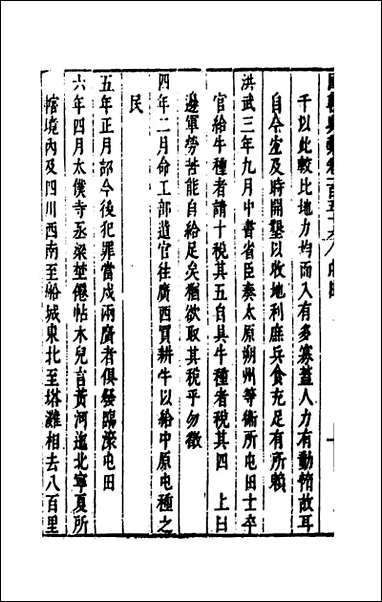 國朝典彙卷一百五十六 屯田
千以此較比地力均而入有多寡蓋人力有勤惰故耳
自今宜及時開墾以收地利庶兵食充足有所賴
洪武三年九月中書省臣奏太原朔州等衛所屯田士卒
官給牛種者請十稅其五自具牛種者稅其四 上曰
邊軍勞苦能自給足矣猶欲取其稅乎勿徵
四年二月命工部遣官往廣西買耕牛以給中原屯種之
民
五年正月詔今後犯罪當戍兩廣者俱發臨濠屯田
六年四月太僕寺丞梁埜僊帖木兒言黃河迤北寧夏所
轄境內及四川西南至船城東北至塔灘相去八百里